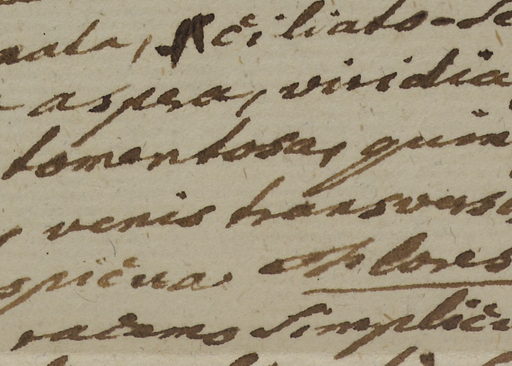 nata, ciliato-se
aspera, viridia
tomentosa, quin
, venis transvers
spicua. Flores
racemo simplici